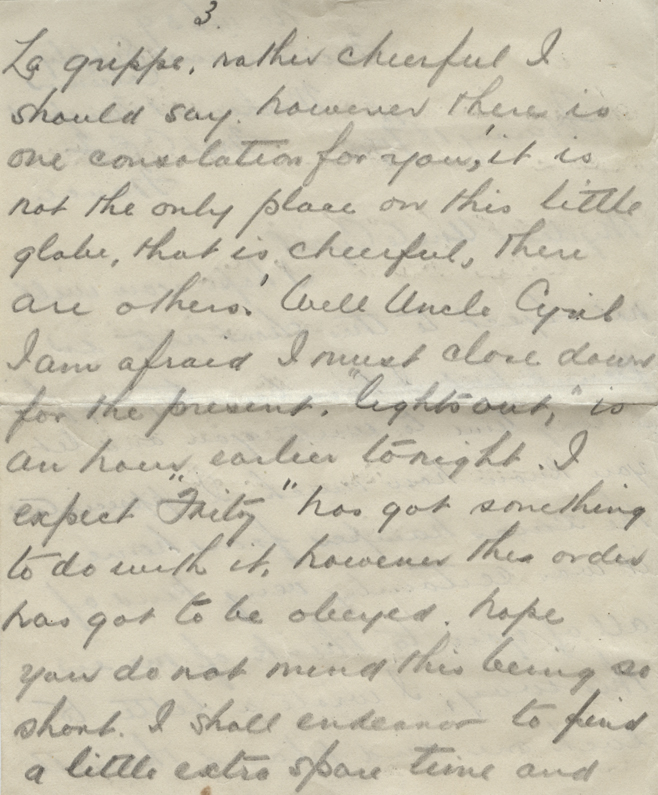 3.
La grippe, rather cheerful I
should say. however there is
one consolation for you, it is
not the only place on this little
globe, that is cheerful, there
are others! Well Uncle Cyril
I am afraid I must close down
for the present. "lights out," is
an hour earlier tonight. I
expect "Fritz" has got something
to do with it, however the order
has got to be obeyed. hope
you do not mind this being so
short. I shall endeavor to find
a little extra spare time and